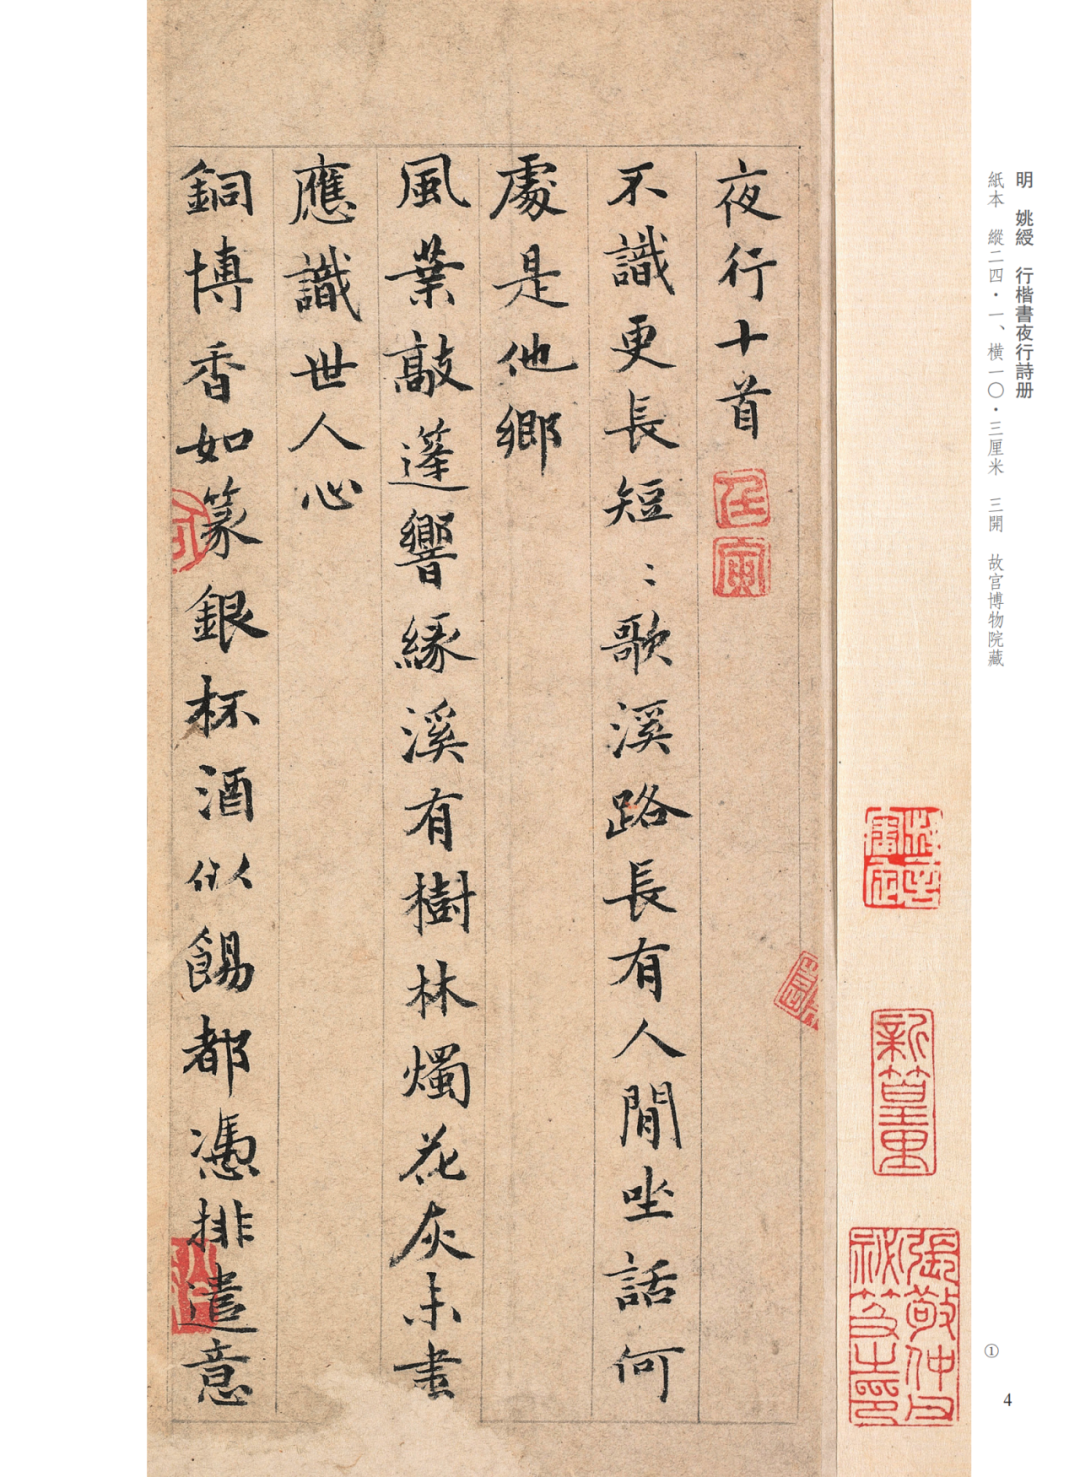 明　姚綬　行楷書夜行詩册
紙本　縱二四·一、橫一〇·三厘米　三開　故宮博物院藏
①
4
夜行十首
壬寅
不識更長短：歌溪路長有人閒坐話何
處是他鄉
風葉敲蓬響緣溪有樹林燭花灰未盡
應識世人心
銅博香如篆銀杯酒似餳都憑排遣意
張敬仲父